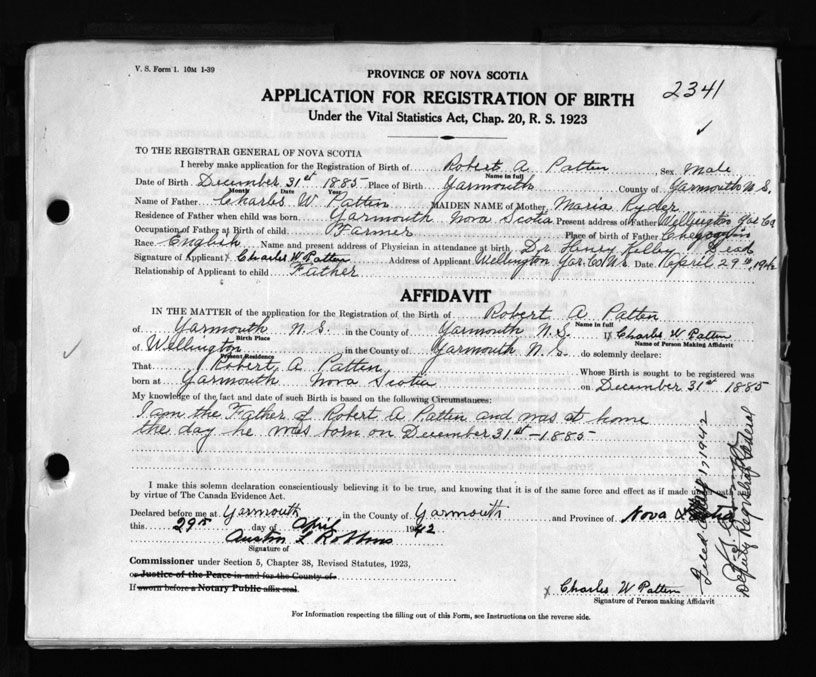 V. S. Form 1. 10M 1-39
PROVINCE OF NOVA SCOTIA
2341
APPLICATION FOR REGISTRATION OF BIRTH
Under the Vital Statistics Act, Chap. 20, R. S. 1923
TO THE REGISTRAR GENERAL OF NOVA SCOTIA
I hereby make application for the Registration of Birth of Robert A. Patten Sex Male
Name in full
Date of Birth December 31st 1885 Place of Birth Yarmouth County of Yarmouth N.S.
Month Date Year
Name of Father Charles W Patten MAIDEN NAME of Mother Maria Ryder
Residence of Father when child was born Yarmouth Nova Scotia Present address of Father Wellington Yar. Co
Occupation of Father at Birth of child Farmer Place of birth of Father
Race English Name and present address of Physician in attendance at birth Dr Henry Kelley Dead
Signature of Applicant x Charles W Patten Address of Applicant Wellington Yar. Co. N.S. Date April 29th, 1942
Relationship of Applicant to child Father
AFFIDAVIT
IN THE MATTER of the application for Registration of the Birth of Robert A Patten
Name in full
of Yarmouth N.S. in the County of Yarmouth N.S. I x Charles W Patten
Birth Place Name of Person Making Affidavit
of Wellington in the County of Yarmouth N.S. do solemnly declare:
Present Residence
That Robert A. Patten Whose Birth is sought to be registered was
born at Yarmouth Nova Scotia on December 31st 1885
My knowledge of the fact and date of such Birth is based on the following Circumstances:
I am the Father of Robert A Patten and was at home
the day he was born on December 31st - 1885
I make this solemn declaration conscientiously believing it to be true, and knowing that it is of the same force and effect as if made under oath and
by virtue of The Canada Evidence Act.
Declared before me at Yarmouth in the County of Yarmouth and Province of Nova Scotia
this 29th day of April 1942
Austin L Robbins
Signature of
Commissioner under Section 5, Chapter 38, Revised Statutes, 1923,
or Justice of the Peace in and for the County of
If sworn before a Notary Public affix seal.
x Charles W Patten
Signature of Person making Affidavit
For Information respecting the filling out of this Form, see Instructions on the reverse side.
Filed 1942
Deputy Registrar General